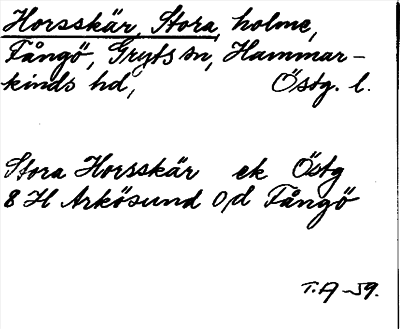 Horsskär, Stora, holme,
Fångö, Gryts sn, Hammar-
kinds hd, Östg. l.
Stora Horsskär ek Östg
8 H Arkösund o/d Fångö
T.A -59.